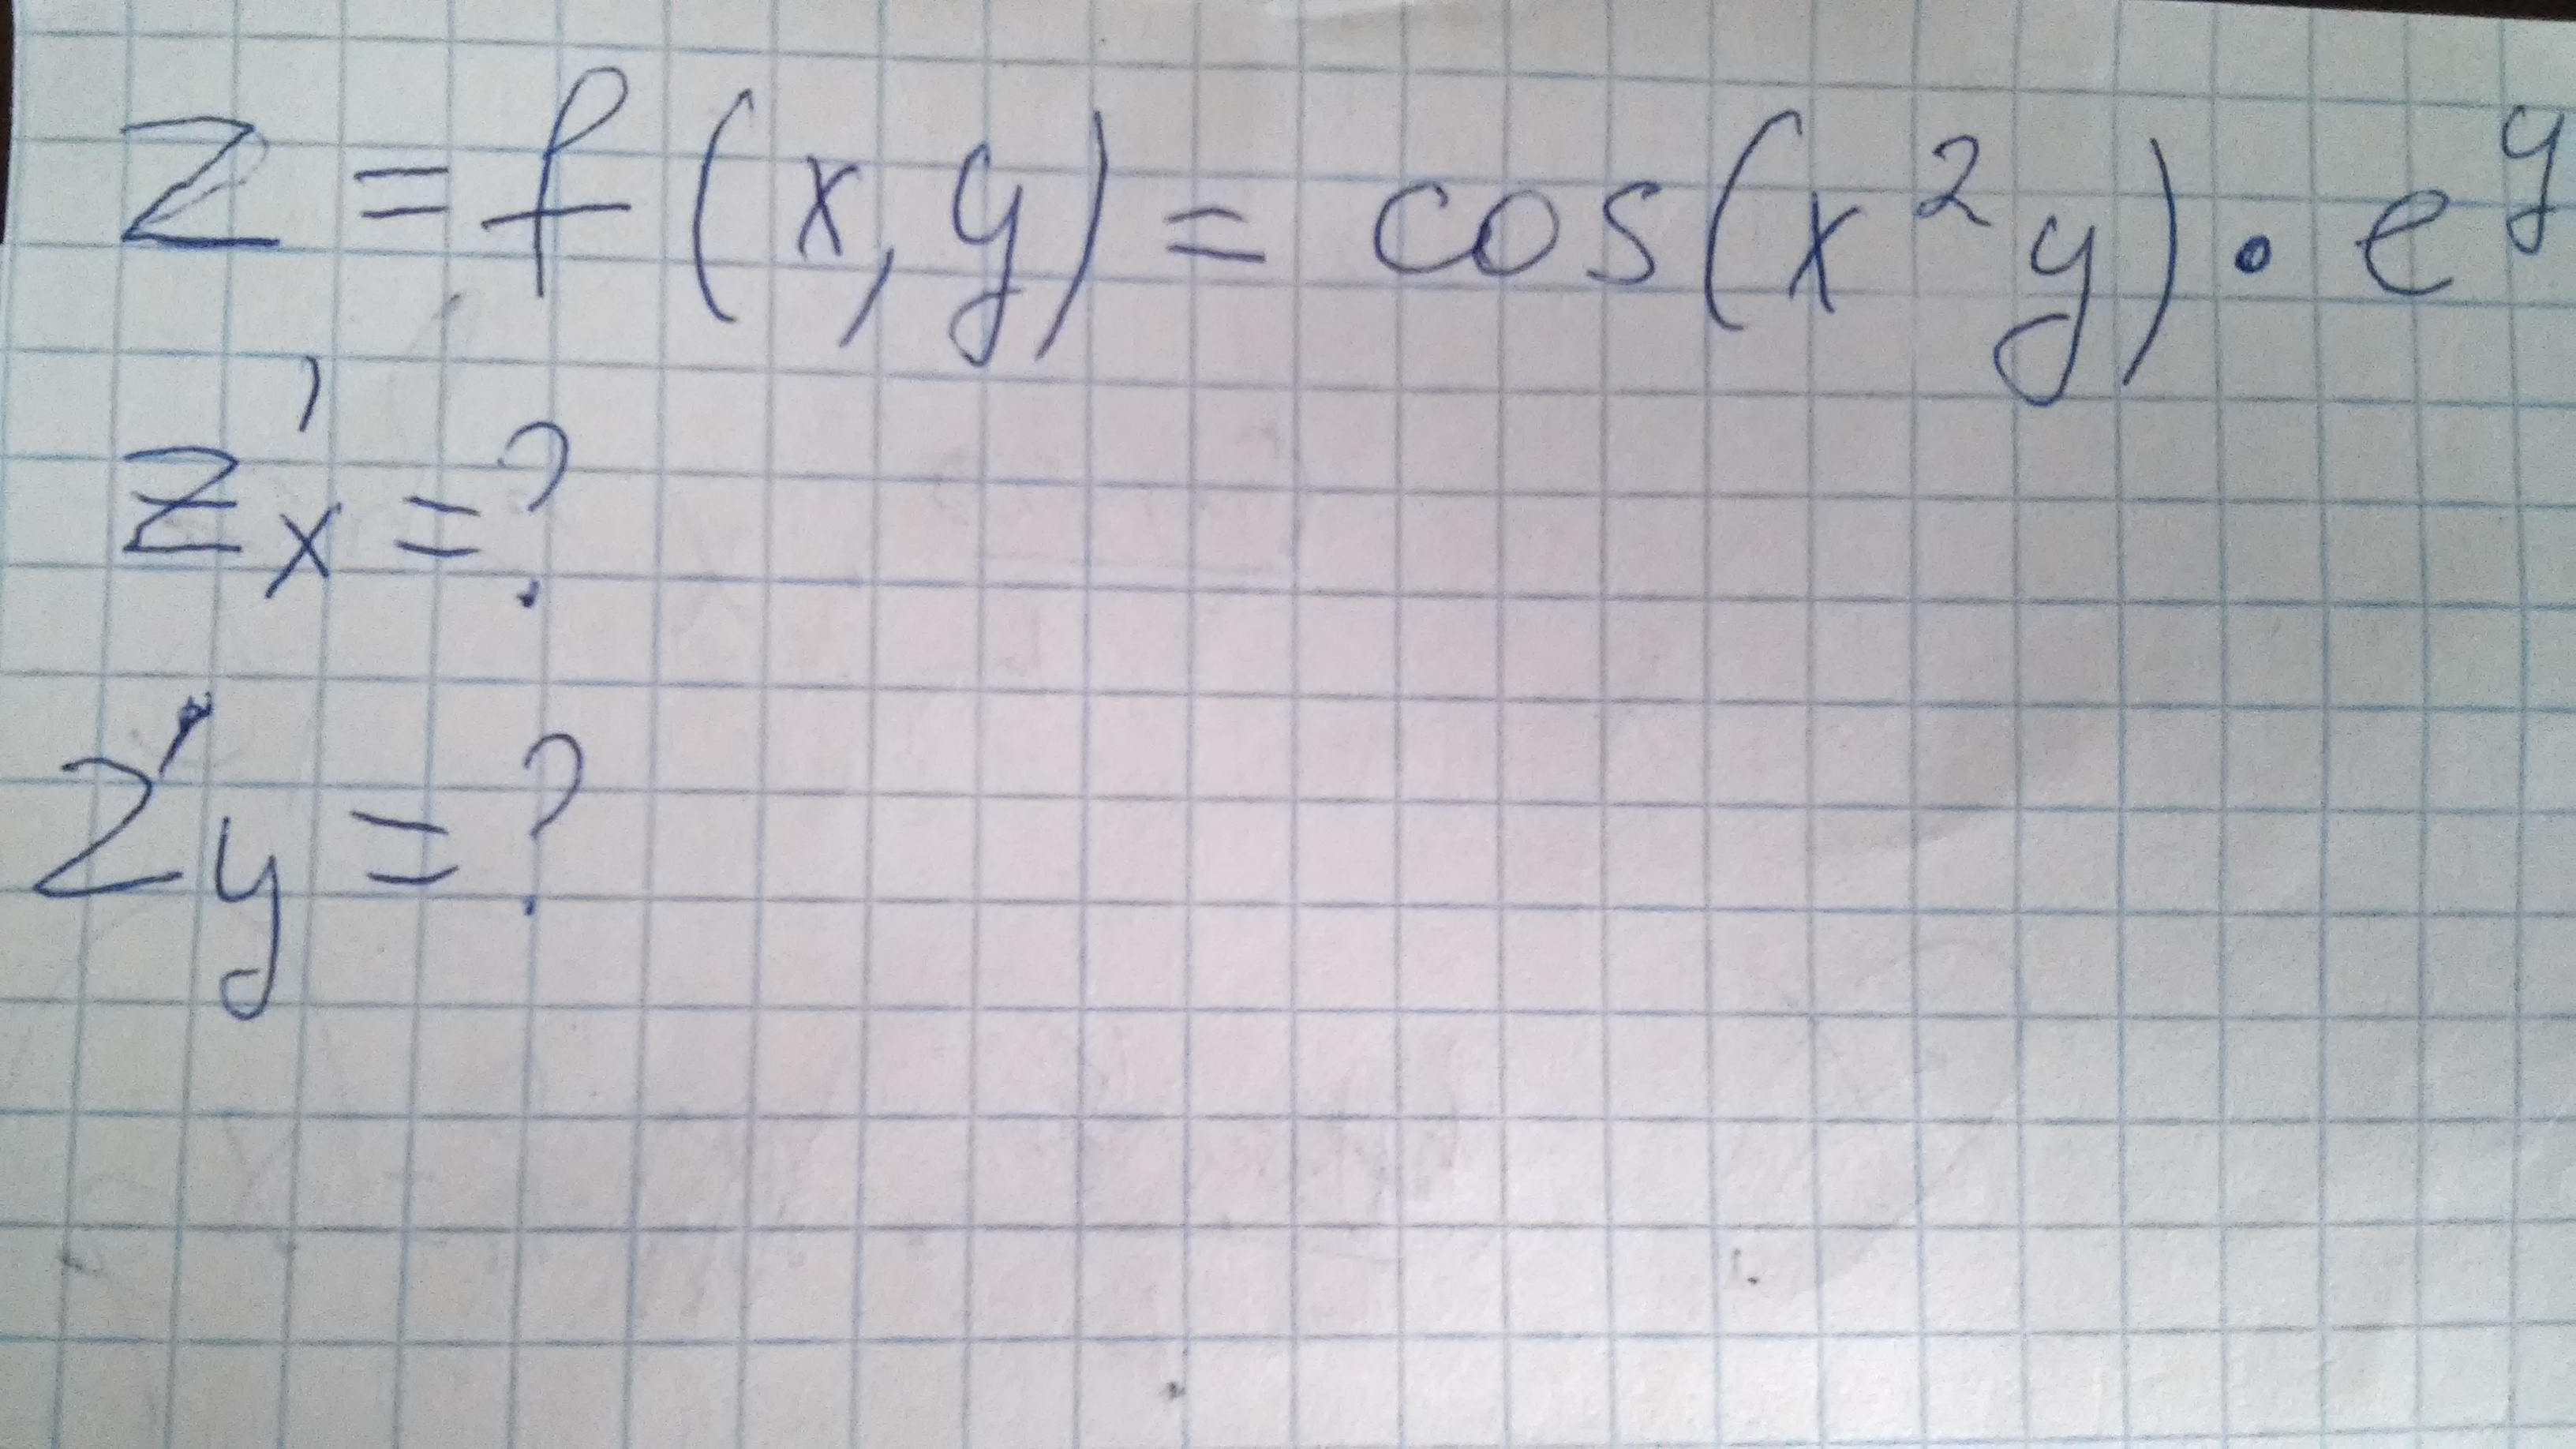 z = f(x,y) = cos(x²y)·e^y
z'x = ?
z'y = ?